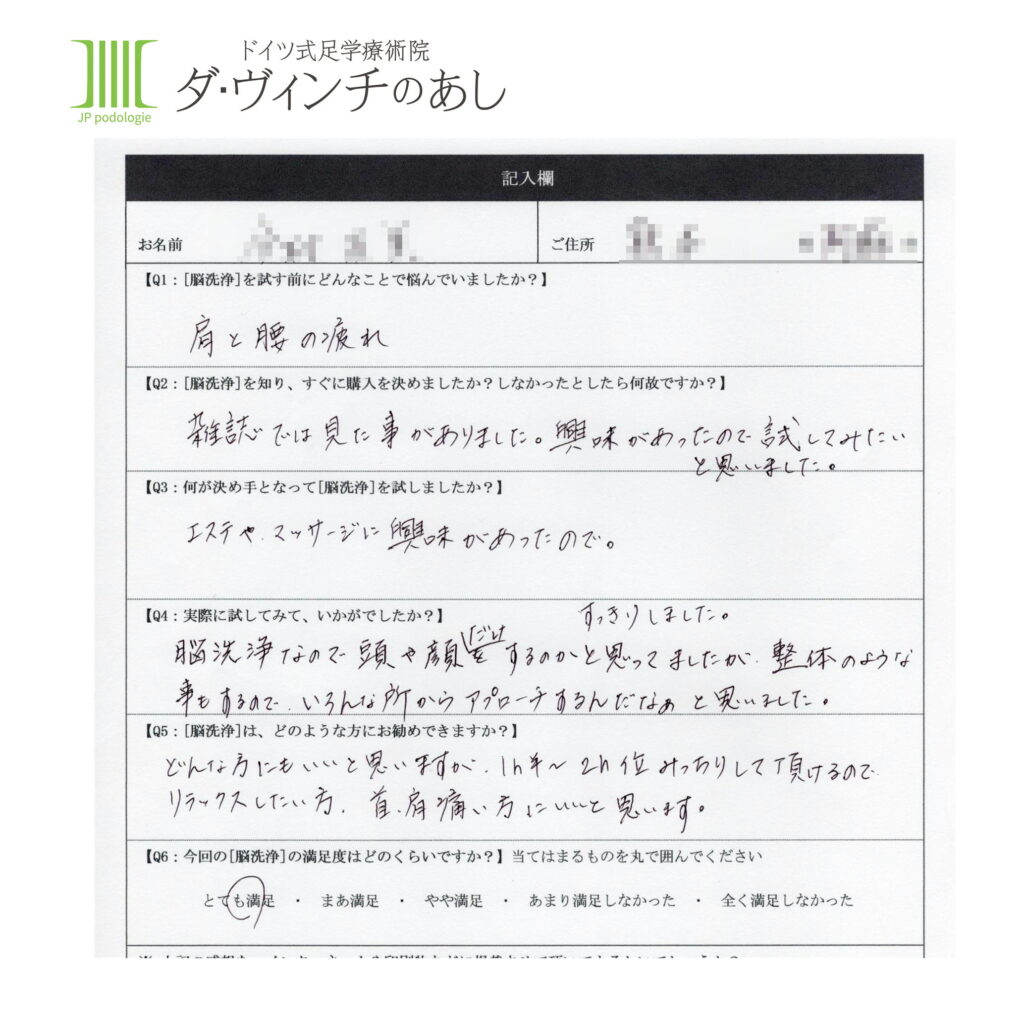 ドイツ式足学療術院
ダ・ヴィンチのあし
JP podologie
記入欄
お名前
ご住所
【Q1：[脳洗浄]を試す前にどんなことで悩んでいましたか？】
肩と腰の疲れ
【Q2：[脳洗浄]を知り、すぐに購入を決めましたか？しなかったとしたら何故ですか？】
雑誌では見た事がありました。興味があったので試してみたい
と思いました。
【Q3：何が決め手となって[脳洗浄]を試しましたか？】
エステや、マッサージに興味があったので。
【Q4：実際に試してみて、いかがでしたか？】
すっきりしました。
脳洗浄なので頭や顔だけをするのかと思ってましたが、整体のような
事もするので、いろんな所からアプローチするんだなぁと思いました。
【Q5：[脳洗浄]は、どのような方にお勧めできますか？】
どんな方にもいいと思いますが、1h半～2h位みっちりして頂けるので
リラックスしたい方、首、肩痛い方にいいと思います。
【Q6：今回の[脳洗浄]の満足度はどのくらいですか？】当てはまるものを丸で囲んでください
とても満足 ・ まあ満足 ・ やや満足 ・ あまり満足しなかった ・ 全く満足しなかった